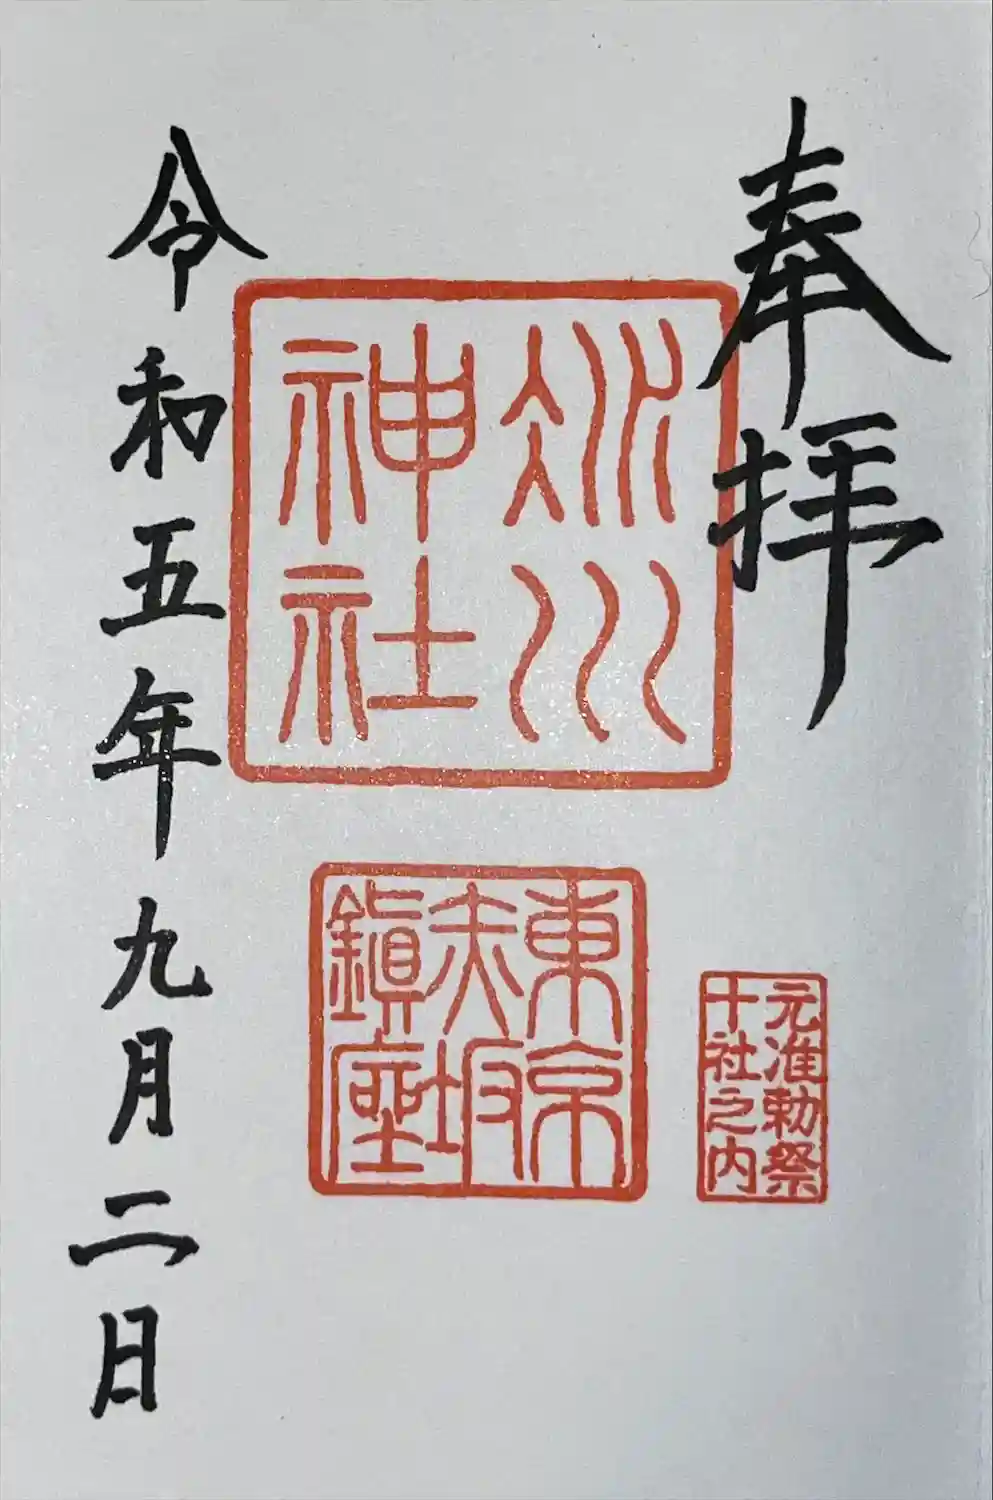 奉拝
元准勅祭
十社之内
冰川
神社
東京
赤坂
鎭座
令和五年九月二日